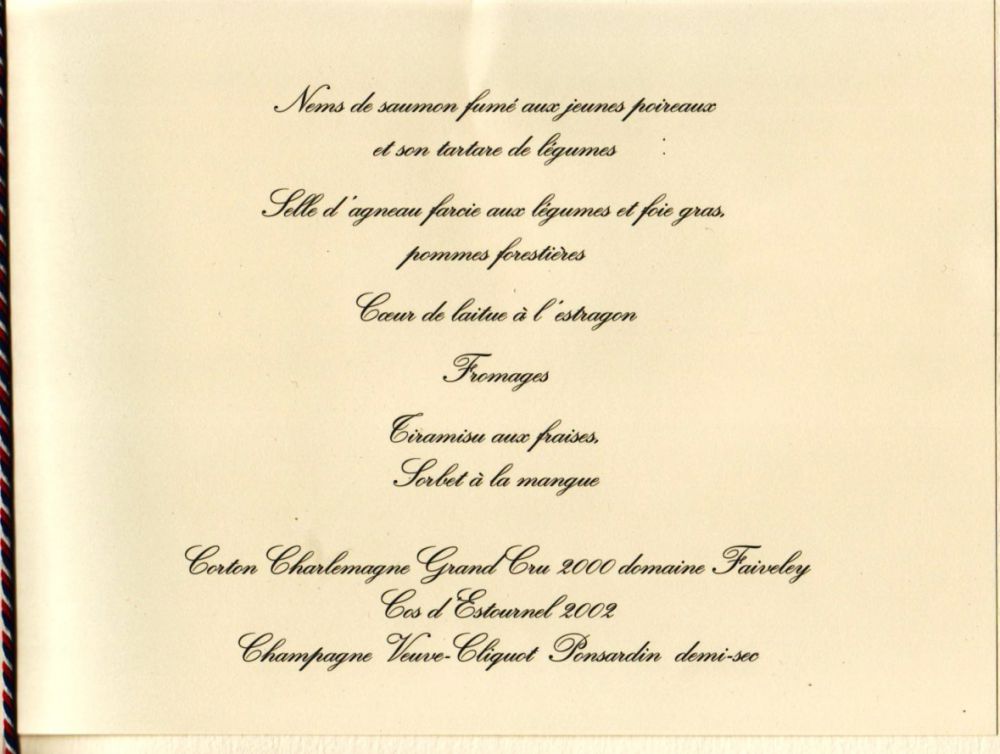 Nems de saumon fumé aux jeunes poireaux
et son tartare de légumes
Selle d'agneau farcie aux légumes et foie gras,
pommes forestières
Cœur de laitue à l'estragon
Fromages
Tiramisu aux fraises,
Sorbet à la mangue
Corton Charlemagne Grand Cru 2000 domaine Faiveley
Cos d'Estournel 2002
Champagne Veuve-Cliquot Ponsardin demi-sec